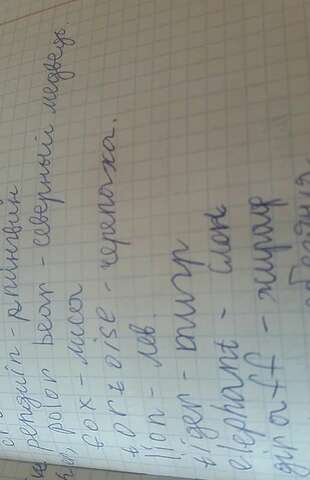 penguin - пингвин
polar bear - северный медведь.
fox - лиса
tortoise - черепаха.
lion - лев.
tiger - тигр
elephant - слон
giraff - жираф